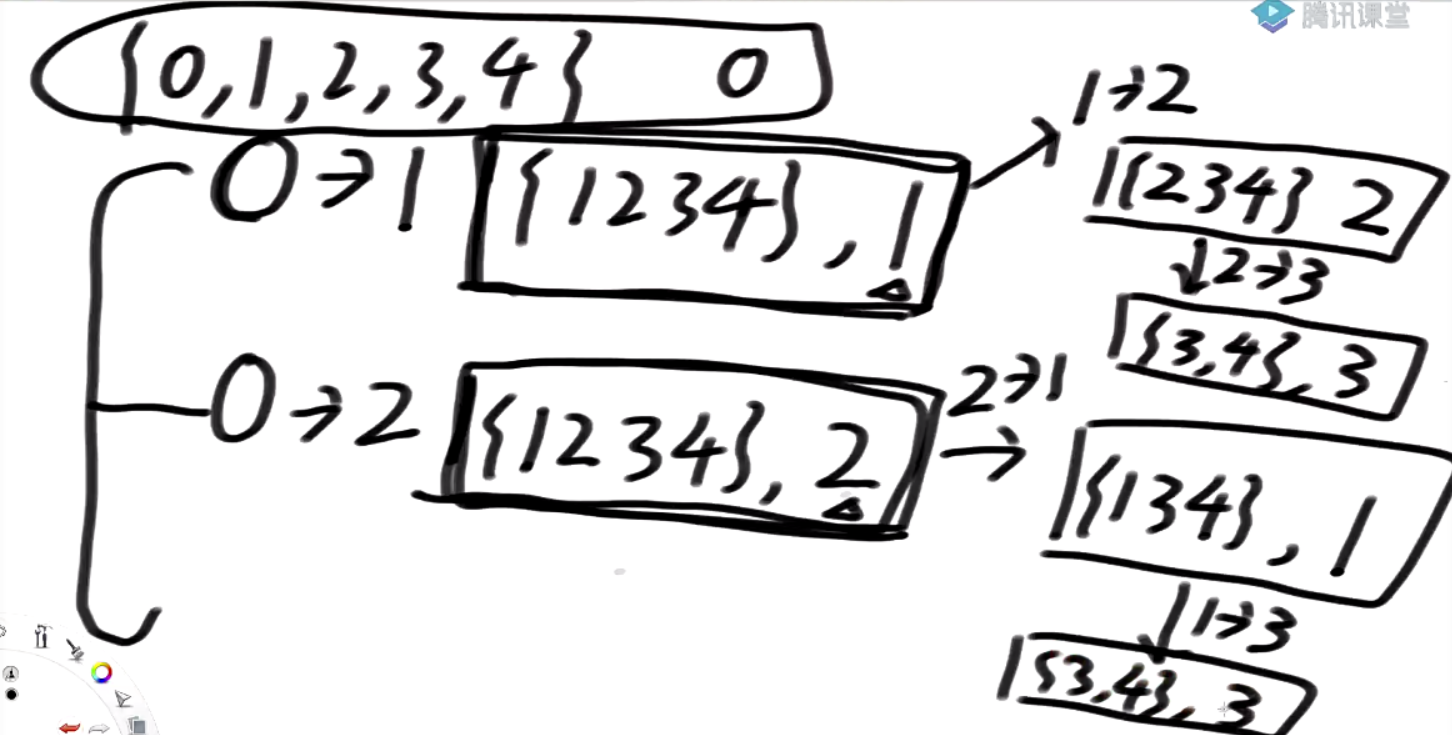 腾讯课堂
{0,1,2,3,4} 0
0→1 {1234},1
1→2
{234} 2
2→3
{3,4},3
0→2 {1234},2
2→1
{134},1
1→3
{3,4},3